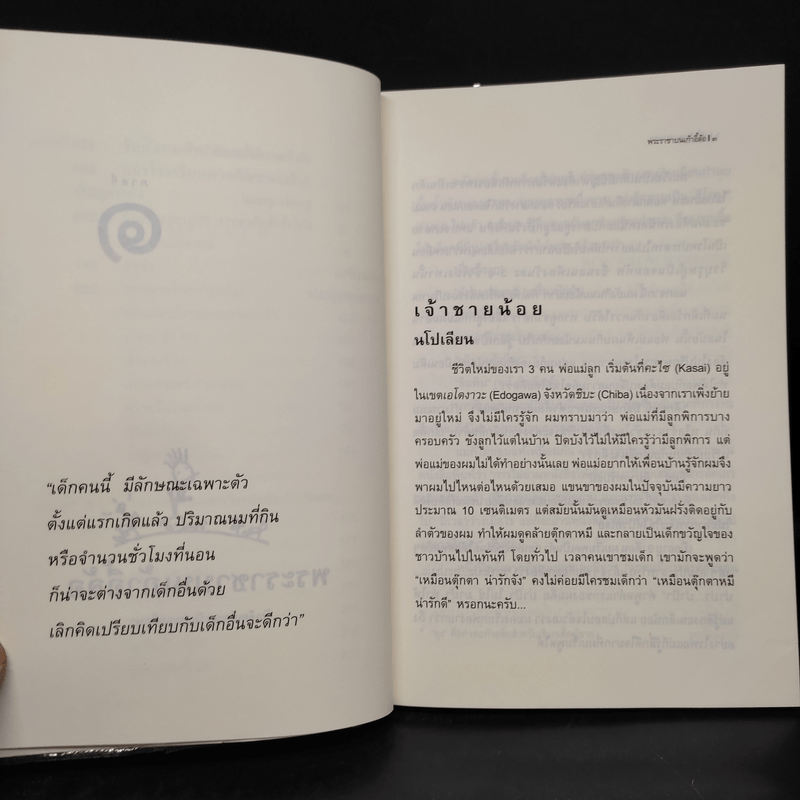 "เด็กคนนี้ มีลักษณะเฉพาะตัว
ตั้งแต่แรกเกิดแล้ว ปริมาณนมที่กิน
หรือจำนวนชั่วโมงที่นอน
ก็น่าจะต่างจากเด็กอื่นด้วย
เลิกคิดเปรียบเทียบกับเด็กอื่นจะดีกว่า"
พระราชาบนเก้าอี้ล้อ ๙
เจ้าชายน้อย
นโปเลียน
ชีวิตใหม่ของเรา 3 คน พ่อแม่ลูก เริ่มต้นที่คะไซ (Kasai) อยู่
ในเขตเอโดงาวะ (Edogawa) จังหวัดชิบะ (Chiba) เนื่องจากเราเพิ่งย้าย
มาอยู่ใหม่ จึงไม่มีใครรู้จัก ผมทราบมาว่า พ่อแม่ที่มีลูกพิการบาง
ครอบครัว ขังลูกไว้แต่ในบ้าน ปิดบังไว้ไม่ให้มีใครรู้ว่ามีลูกพิการ แต่
พ่อแม่ของผมไม่ได้ทำอย่างนั้นเลย พ่อแม่อยากให้เพื่อนบ้านรู้จักผมจึง
พาผมไปไหนต่อไหนด้วยเสมอ แขนขาของผมในปัจจุบันมีความยาว
ประมาณ 10 เซนติเมตร แต่สมัยนั้นมันดูเหมือนหัวมันฝรั่งติดอยู่กับ
ลำตัวของผม ทำให้ผมดูคล้ายตุ๊กตาหมี และกลายเป็นเด็กขวัญใจของ
ชาวบ้านไปในทันที โดยทั่วไป เวลาคนเขาชมเด็ก เขามักจะพูดว่า
"เหมือนตุ๊กตา น่ารักจัง" คงไม่ค่อยมีใครชมเด็กว่า "เหมือนตุ๊กตาหมี
น่ารักดี" หรอกนะครับ...